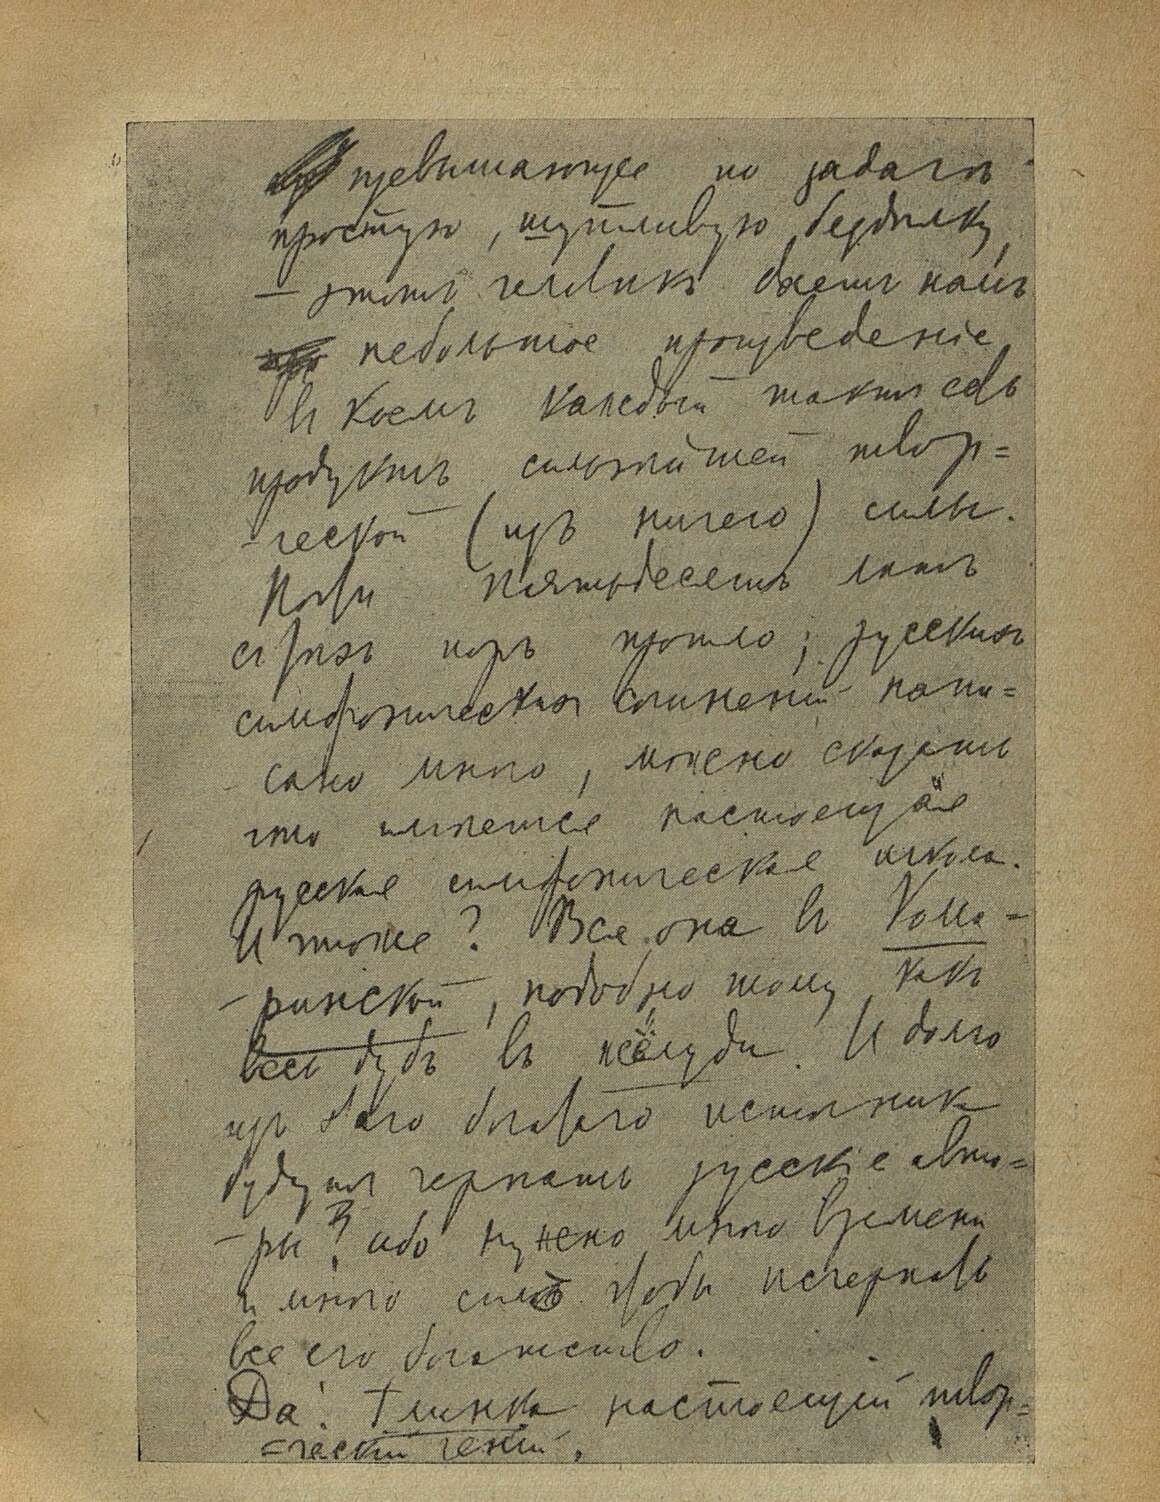 превышающее по задачѣ
простую, шутливую бездѣлку,
— этотъ человѣкъ даетъ намъ
небольшое произведеніе
въ коемъ каждый тактъ есть
продуктъ сильнѣйшей твор=
-ческой (изъ ничего) силы.
Почти пятьдесятъ лѣтъ
съ тѣхъ поръ прошло; русскихъ
симфоническихъ сочиненій напи=
сано много, можно сказать
что имѣется настоящая
русская симфоническая школа.
И что же? Вся она въ Кома-
-ринской, подобно тому какъ
весь дубъ въ жёлуди. И долго
изъ этого богатаго источника
будутъ черпать русскіе авто=
-ры, ибо нужно много времени
и много силъ чтобы исчерпать
все его богатство.
Да! Глинка настоящій твор=
=ческій геній.